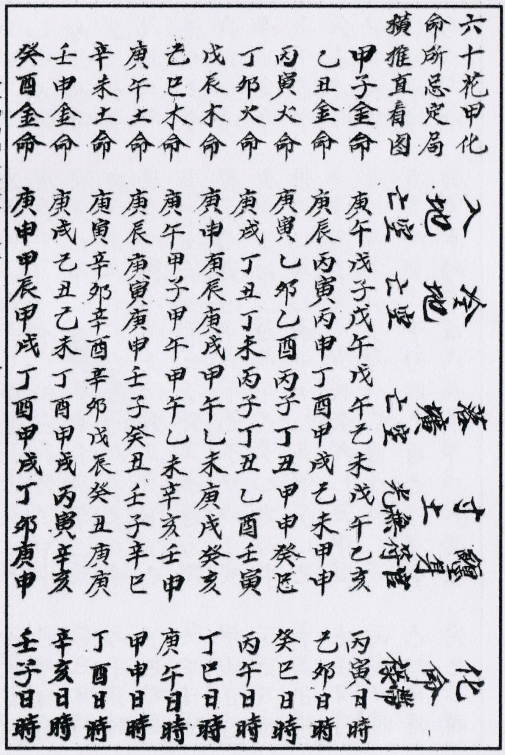 六十花甲化
命所忌定局
橫推直看图
入地
空亡
冷地
空亡
落壙
空亡
寸土
無光
化命
甲子金命 庚午戊子戊午戊午己未戊午乙亥 丙寅日時
乙丑金命 庚辰丙寅丙申丁酉甲戌己未甲申 己卯日時
丙寅火命 庚寅乙卯乙酉丙子丁丑甲申癸巳 癸巳日時
丁卯火命 庚戌丁丑丁未丙子丁丑乙酉壬寅 丙午日時
戊辰木命 庚申庚辰庚戌甲午乙未庚戌癸亥 丁巳日時
己巳木命 庚午甲子甲午甲午乙未辛亥壬申 庚午日時
庚午土命 庚辰庚寅庚申壬子癸丑壬子辛巳 甲申日時
辛未土命 庚寅辛卯辛酉辛卯戊辰癸丑庚庚 丁酉日時
壬申金命 庚戌己丑己未丁酉甲戌丙寅辛亥 辛亥日時
癸酉金命 庚申甲辰甲戌丁酉甲戌丁卯庚申 壬子日時